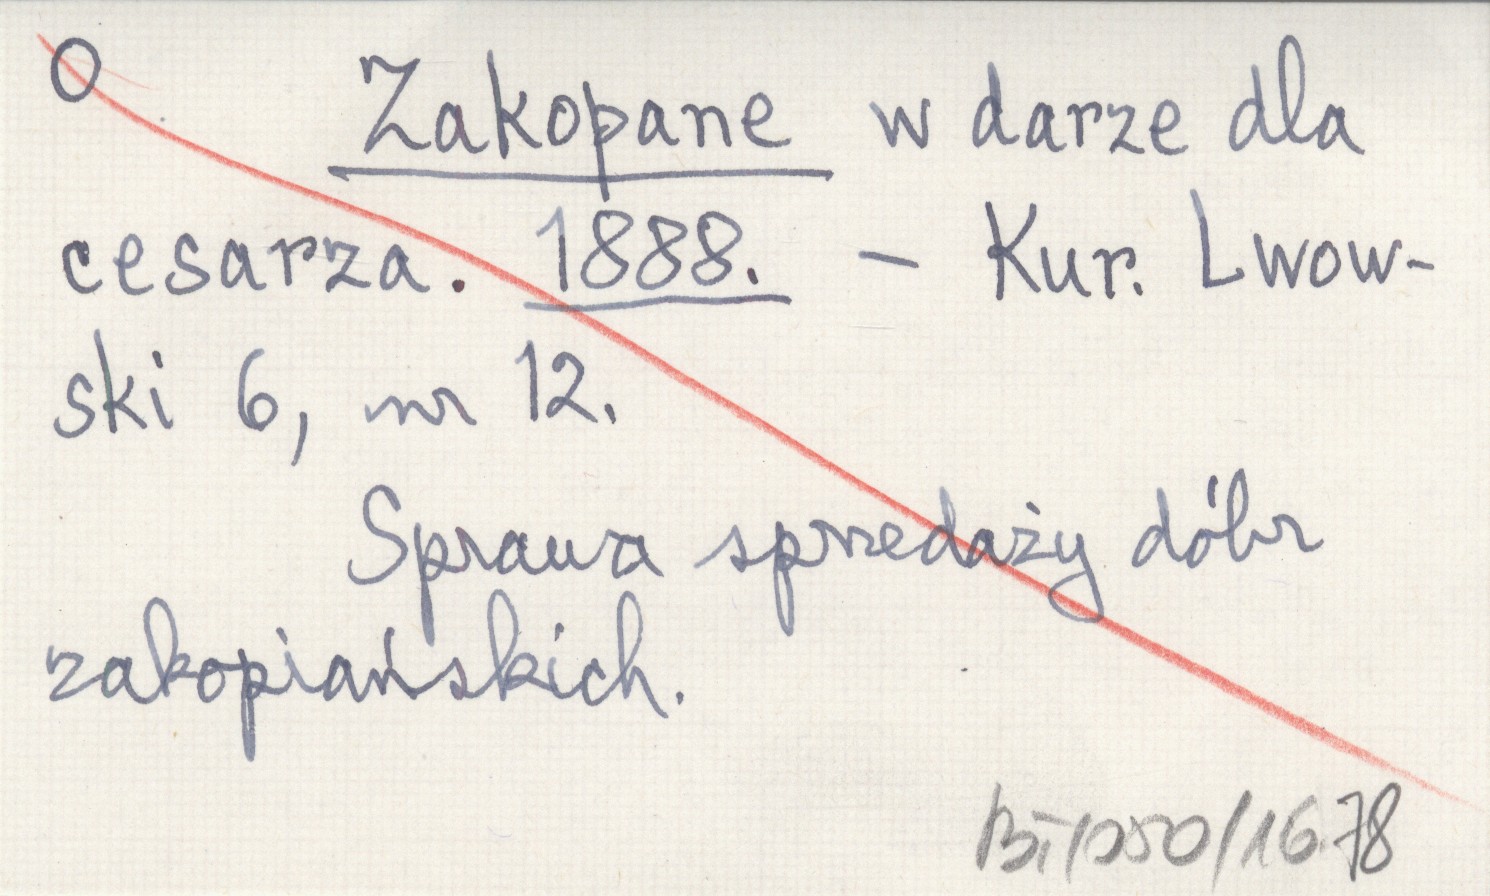 O Zakopane w darze dla
cesarza. 1888. – Kur. Lwow-
ski 6, nr 12.
Sprawa sprzedaży dóbr
zakopiańskich.